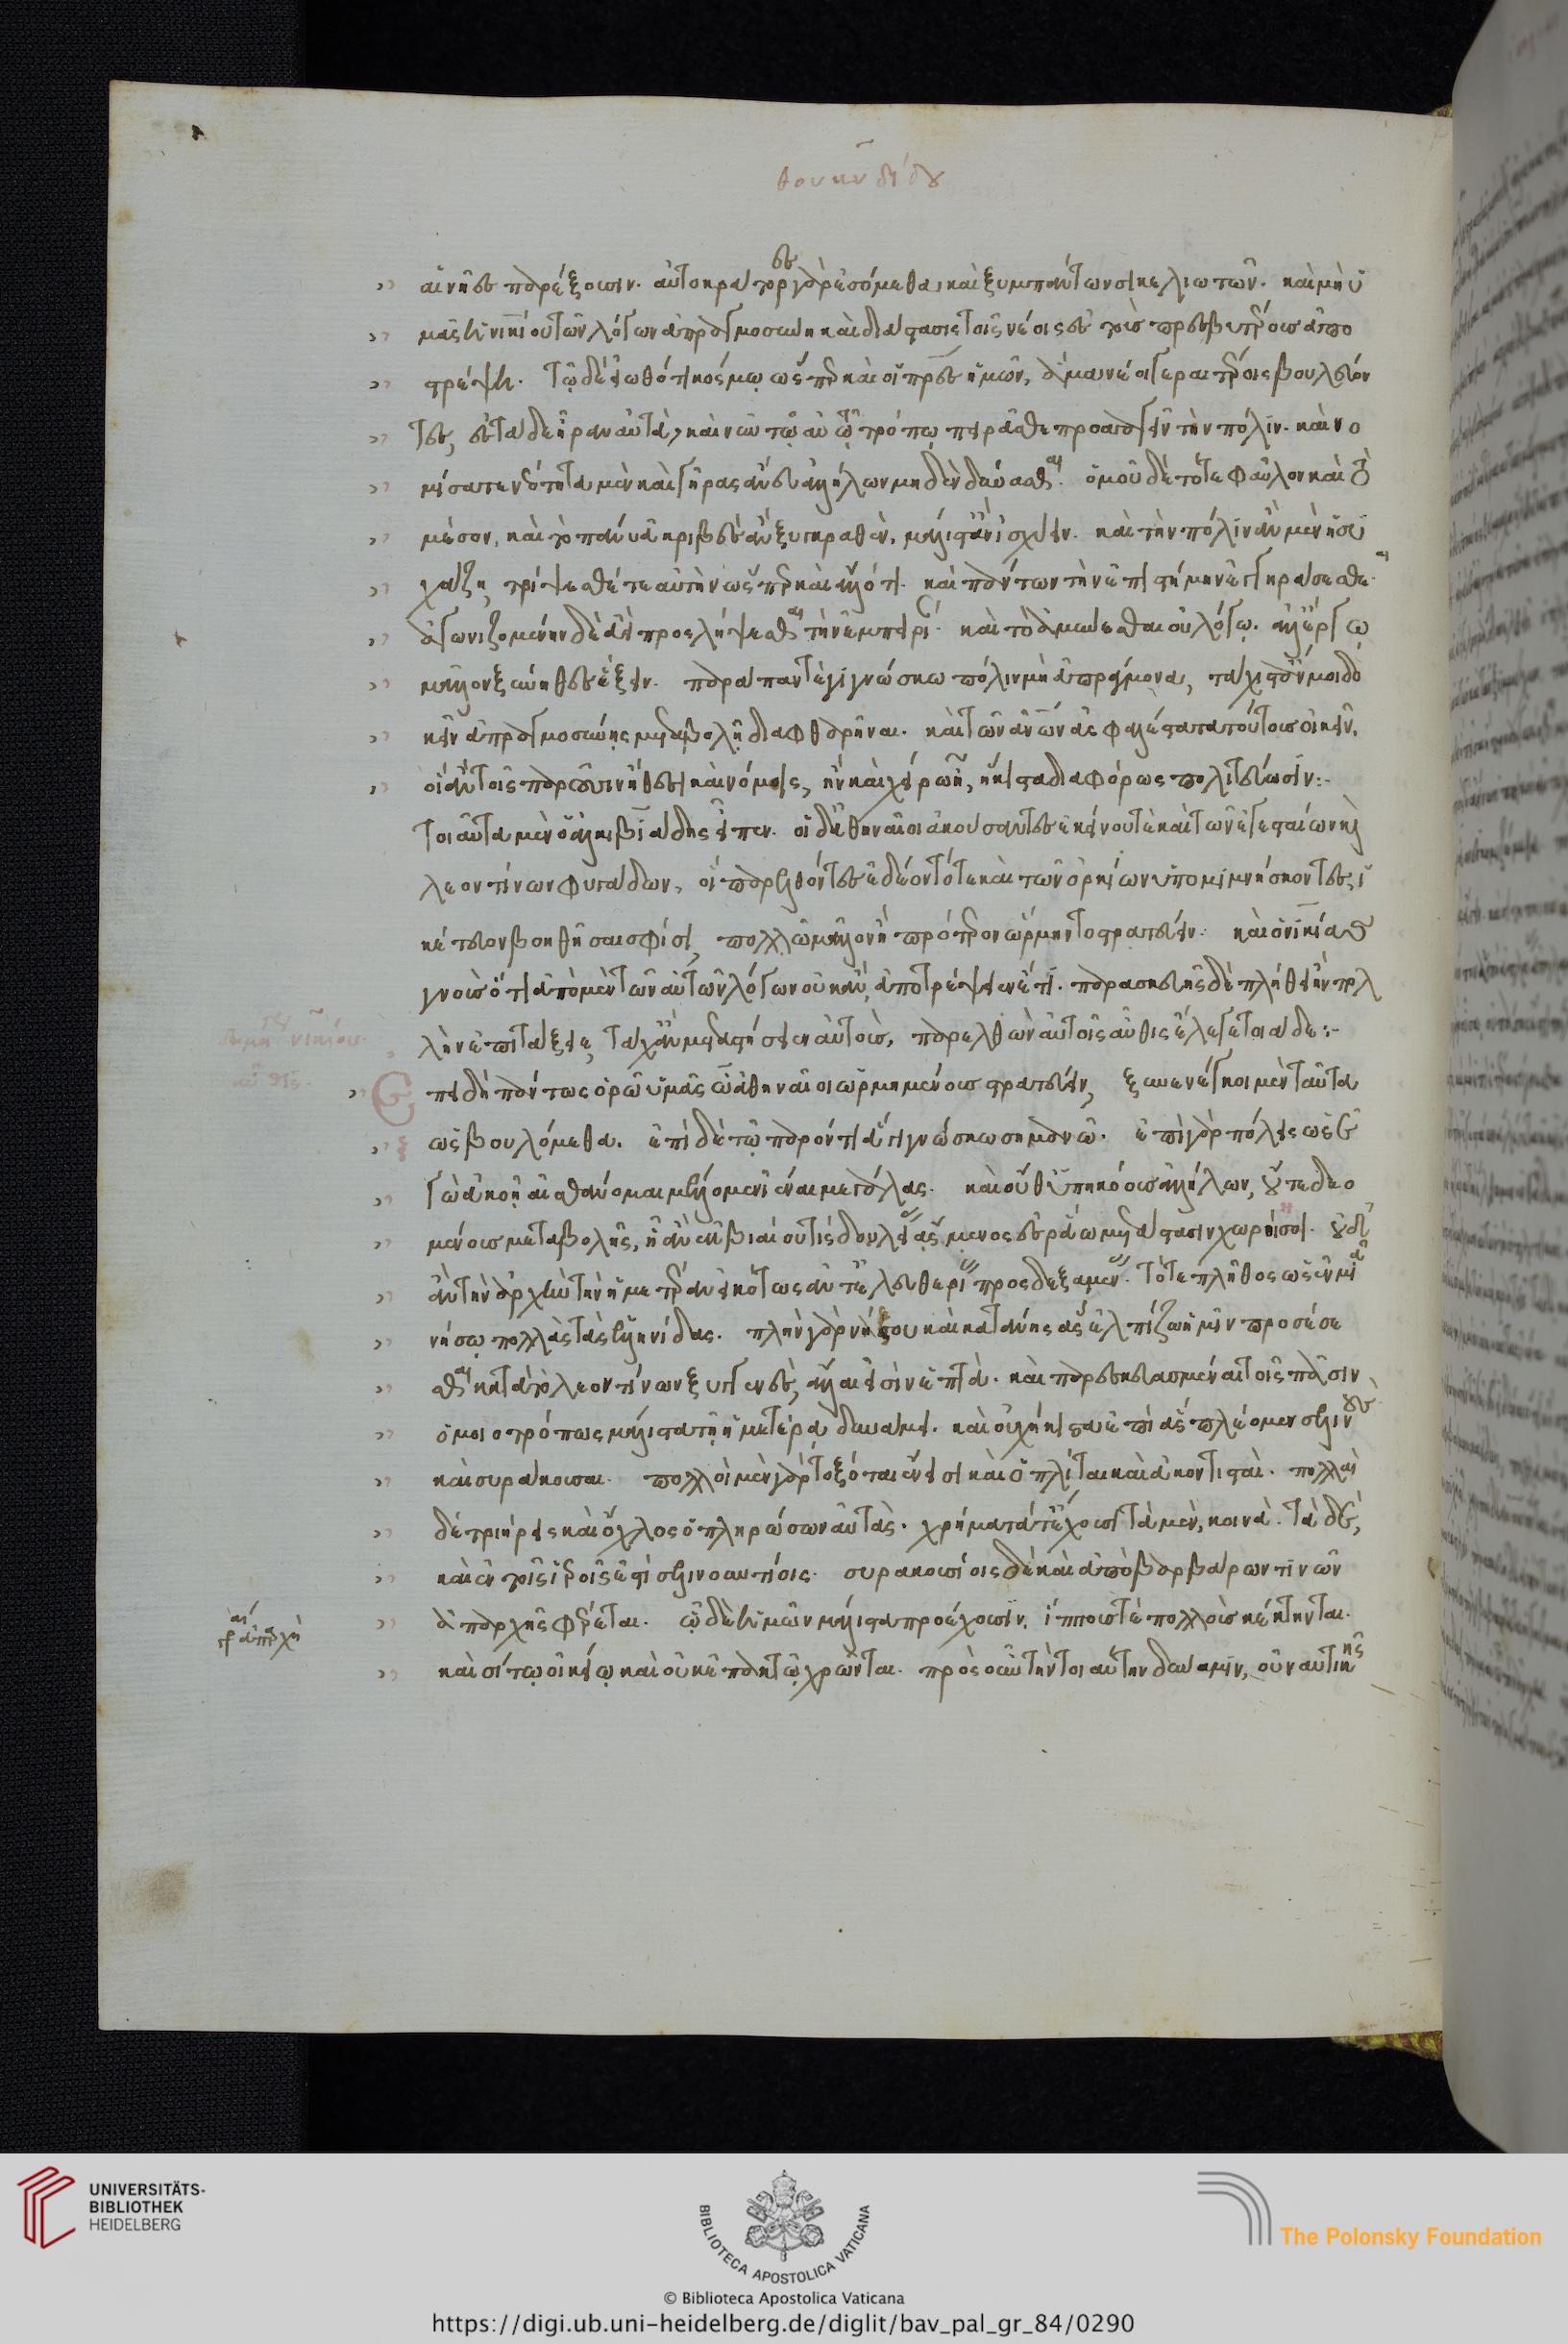 θουκυδίδου
αἱ νῆες παρέξουσιν. αὐτοκράτορες γὰρ ἐσόμεθα, καὶ ξυμπάντων σικελιωτῶν. καὶ μὴ ὑ
μᾶς ἡ νικίου τῶν λόγων ἀπραγμοσύνη καὶ διάστασις τοῖς νέοις ἐς τοὺς πρεσβυτέρους ἀπο
τρέψῃ. τῷ δὲ εἰωθότι κόσμῳ ὥσπερ καὶ οἱ πατέρες ἡμῶν, ἅμα νέοι γεραιτέροις βουλεύον
τες, ἐς τάδε ἦραν αὐτὰ, καὶ νῦν τῷ αὐτῷ τρόπῳ πειρᾶσθε προαγαγεῖν τὴν πόλιν. καὶ νο
μίσατε νεότητα μὲν καὶ γῆρας ἄνευ ἀλλήλων μηδὲν δύνασθαι. ὁμοῦ δὲ τό τε φαῦλον καὶ τὸ
μέσον, καὶ τὸ πάνυ ἀκριβὲς ἂν ξυγκραθὲν, μάλιστ' ἂν ἰσχύειν. καὶ τὴν πόλιν ἂν μὲν ἡσυ
χάζῃ, τρίψεσθαί τε αὐτὴν ὥσπερ καὶ ἄλλό τι. καὶ πάντων τὴν ἐπιστήμην ἐγγηράσεσθαι.
ἀγωνιζομένην δὲ ἀεὶ προσλήψεσθαι τὴν ἐμπειρίαν. καὶ τὸ ἀμύνεσθαι οὐ λόγῳ. ἀλλ' ἔργῳ
μᾶλλον ξύνηθες ἕξειν. παράπαν τε γιγνώσκω πόλιν μὴ ἀπράγμονα, τάχιστ' ἄν μοι δο
κεῖν ἀπραγμοσύνης μεταβολῇ διαφθαρῆναι. καὶ τῶν ἀνθρώπων ἀσφαλέστατα τούτους οἰκεῖν,
οἳ ἂν τοῖς παροῦσιν ἤθεσι καὶ νόμοις, ἢν καὶ χείρω ᾖ, ἥκιστα διαφόρως πολιτεύωσιν:-
τοιαῦτα μὲν ὁ ἀλκιβιάδης εἶπεν. οἱ δ' ἀθηναῖοι ἀκούσαντες ἐκείνου τὲ καὶ τῶν ἐγεσταίων καὶ
λεοντίνων φυγάδων, οἳ παρελθόντες ἐδέοντό τε καὶ τῶν ὁρκίων ὑπομιμνήσκοντες, ἱ
κέτευον βοηθῆσαι σφίσι, πολλῷ μᾶλλον ἢ πρότερον ὥρμηντο στρατεύειν. καὶ ὁ νικίας
γνοὺς ὅτι ἀπὸ μὲν τῶν αὐτῶν λόγων οὐκ ἂν ἀποτρέψειεν ἔτι. παρασκευῆς δὲ πλήθει ἢν πολ
λὴν ἐπιτάξειε, τάχ' ἂν μεταστήσειεν αὐτοὺς, παρελθὼν αὐτοῖς αὖθις ἔλεγε τοιάδε:-
δημηγορία νικίου
Ἐπειδὴ πάντως ὁρῶ ὑμᾶς ὦ ἀθηναῖοι ὡρμημένους στρατεύειν, ξυνενέγκοι μὲν ταῦτα
ὡς βουλόμεθα. ἐπὶ δὲ τῷ παρόντι ἃ γιγνώσκω σημανῶ. ἐπὶ γὰρ πόλεις ὡς ἐ
γὼ ἀκοῇ αἰσθάνομαι μέλλομεν ἰέναι μεγάλας. καὶ οὔθ' ὑπηκόους ἀλλήλων, οὔτε δεο
μένους μεταβολῆς, ᾗ ἂν ἐκ βιαίου τὶς δουλείας ἄσμενος ἐς ῥάω μετάστασιν χωρήσοι. οὐδ'
ἂν τὴν ἀρχὴν τὴν ἡμετέραν εἰκότως ἀντ' ἐλευθερίας προσδεξαμένους. τό τε πλῆθος ὡς ἐν μιᾷ
νήσῳ πολλὰς τὰς ἑλληνίδας. πλὴν γὰρ νάξου καὶ κατάνης ἃς ἐλπίζω ἡμῖν προσέσε
σθαι κατὰ τὸ λεοντίνων ξυγγενὲς, ἄλλαι εἰσὶν ἑπτὰ. καὶ παρεσκευασμέναι τοῖς πᾶσιν
ὁμοιοτρόπως μάλιστα τῇ ἡμετέρᾳ δυνάμει. καὶ οὐχ ἥκιστα ἐπὶ ἃς πλέομεν σελινοῦς
καὶ συράκουσαι. πολλοὶ μὲν γὰρ τοξόται ἔνεισι καὶ ὁπλῖται καὶ ἀκοντισταὶ. πολλαὶ
δὲ τριήρεις καὶ ὄχλος ὁ πληρώσων αὐτὰς. χρήματά τ' ἔχουσι τὰ μὲν, κοινὰ. τὰ δὲ,
καὶ ἐν τοῖς ἱεροῖς ἐστὶ σελινουντίοις. συρακουσίοις δὲ καὶ ἀπὸ βαρβάρων τινῶν
ἀπαρχῆς φέρεται. ᾧ δὲ ἡμῶν μάλιστα προέχουσιν, ἵππους τὲ πολλοὺς κέκτηνται.
καὶ σίτῳ οἰκείῳ καὶ οὐκ ἐπακτῷ χρῶνται. πρὸς οὖν τὴν τοιαύτην δύναμιν, οὐ ναυτικῆς
UNIVERSITÄTS-
BIBLIOTHEK
HEIDELBERG
BIBLIOTECA APOSTOLICA VATICANA
The Polonsky Foundation
© Biblioteca Apostolica Vaticana
https://digi.ub.uni-heidelberg.de/diglit/bav_pal_gr_84/0290